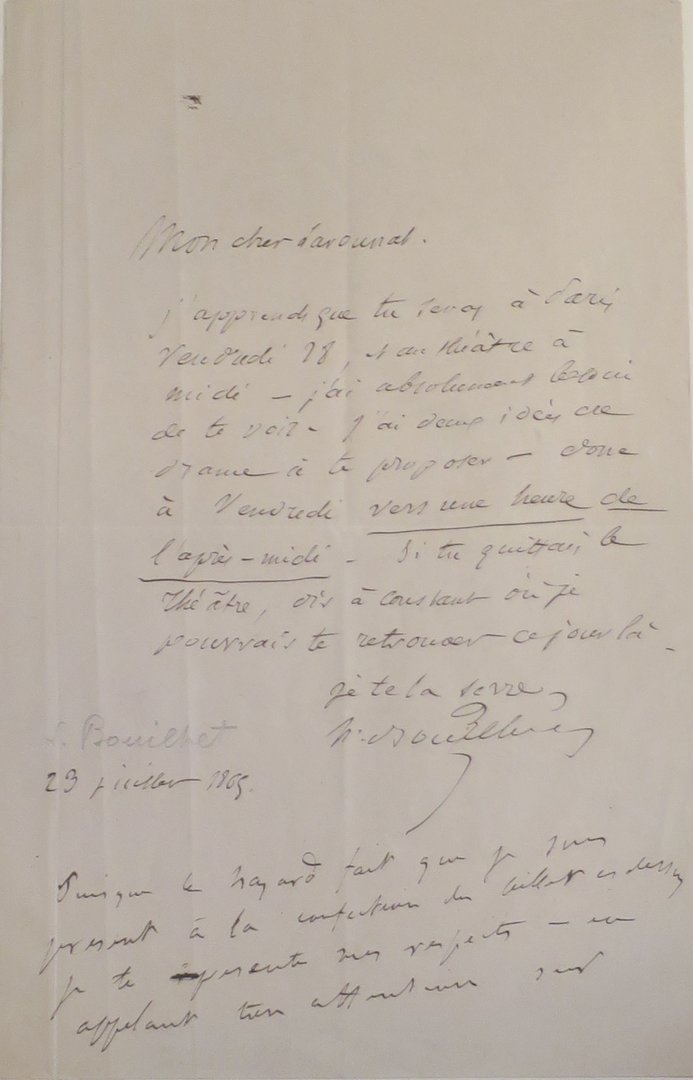 Mon cher Larounat.
j'apprends que tu seras à Paris
Vendredi 28, et au théâtre à
midi – j'ai absolument besoin
de te voir – J'ai deux idées de
drame à te proposer – donc
à Vendredi vers une heure de
l'après-midi – Si tu quittais le
théâtre, dis à constant où je
pourrais te retrouver ce jour là –
je te la serre,
L. Bouilhet
L. Bouilhet
23 juillet 1865.
Puisque le hazard fait que je suis
présent à la confection du billet ci dessus
je te présente mes respects – en
appelant ton attention sur